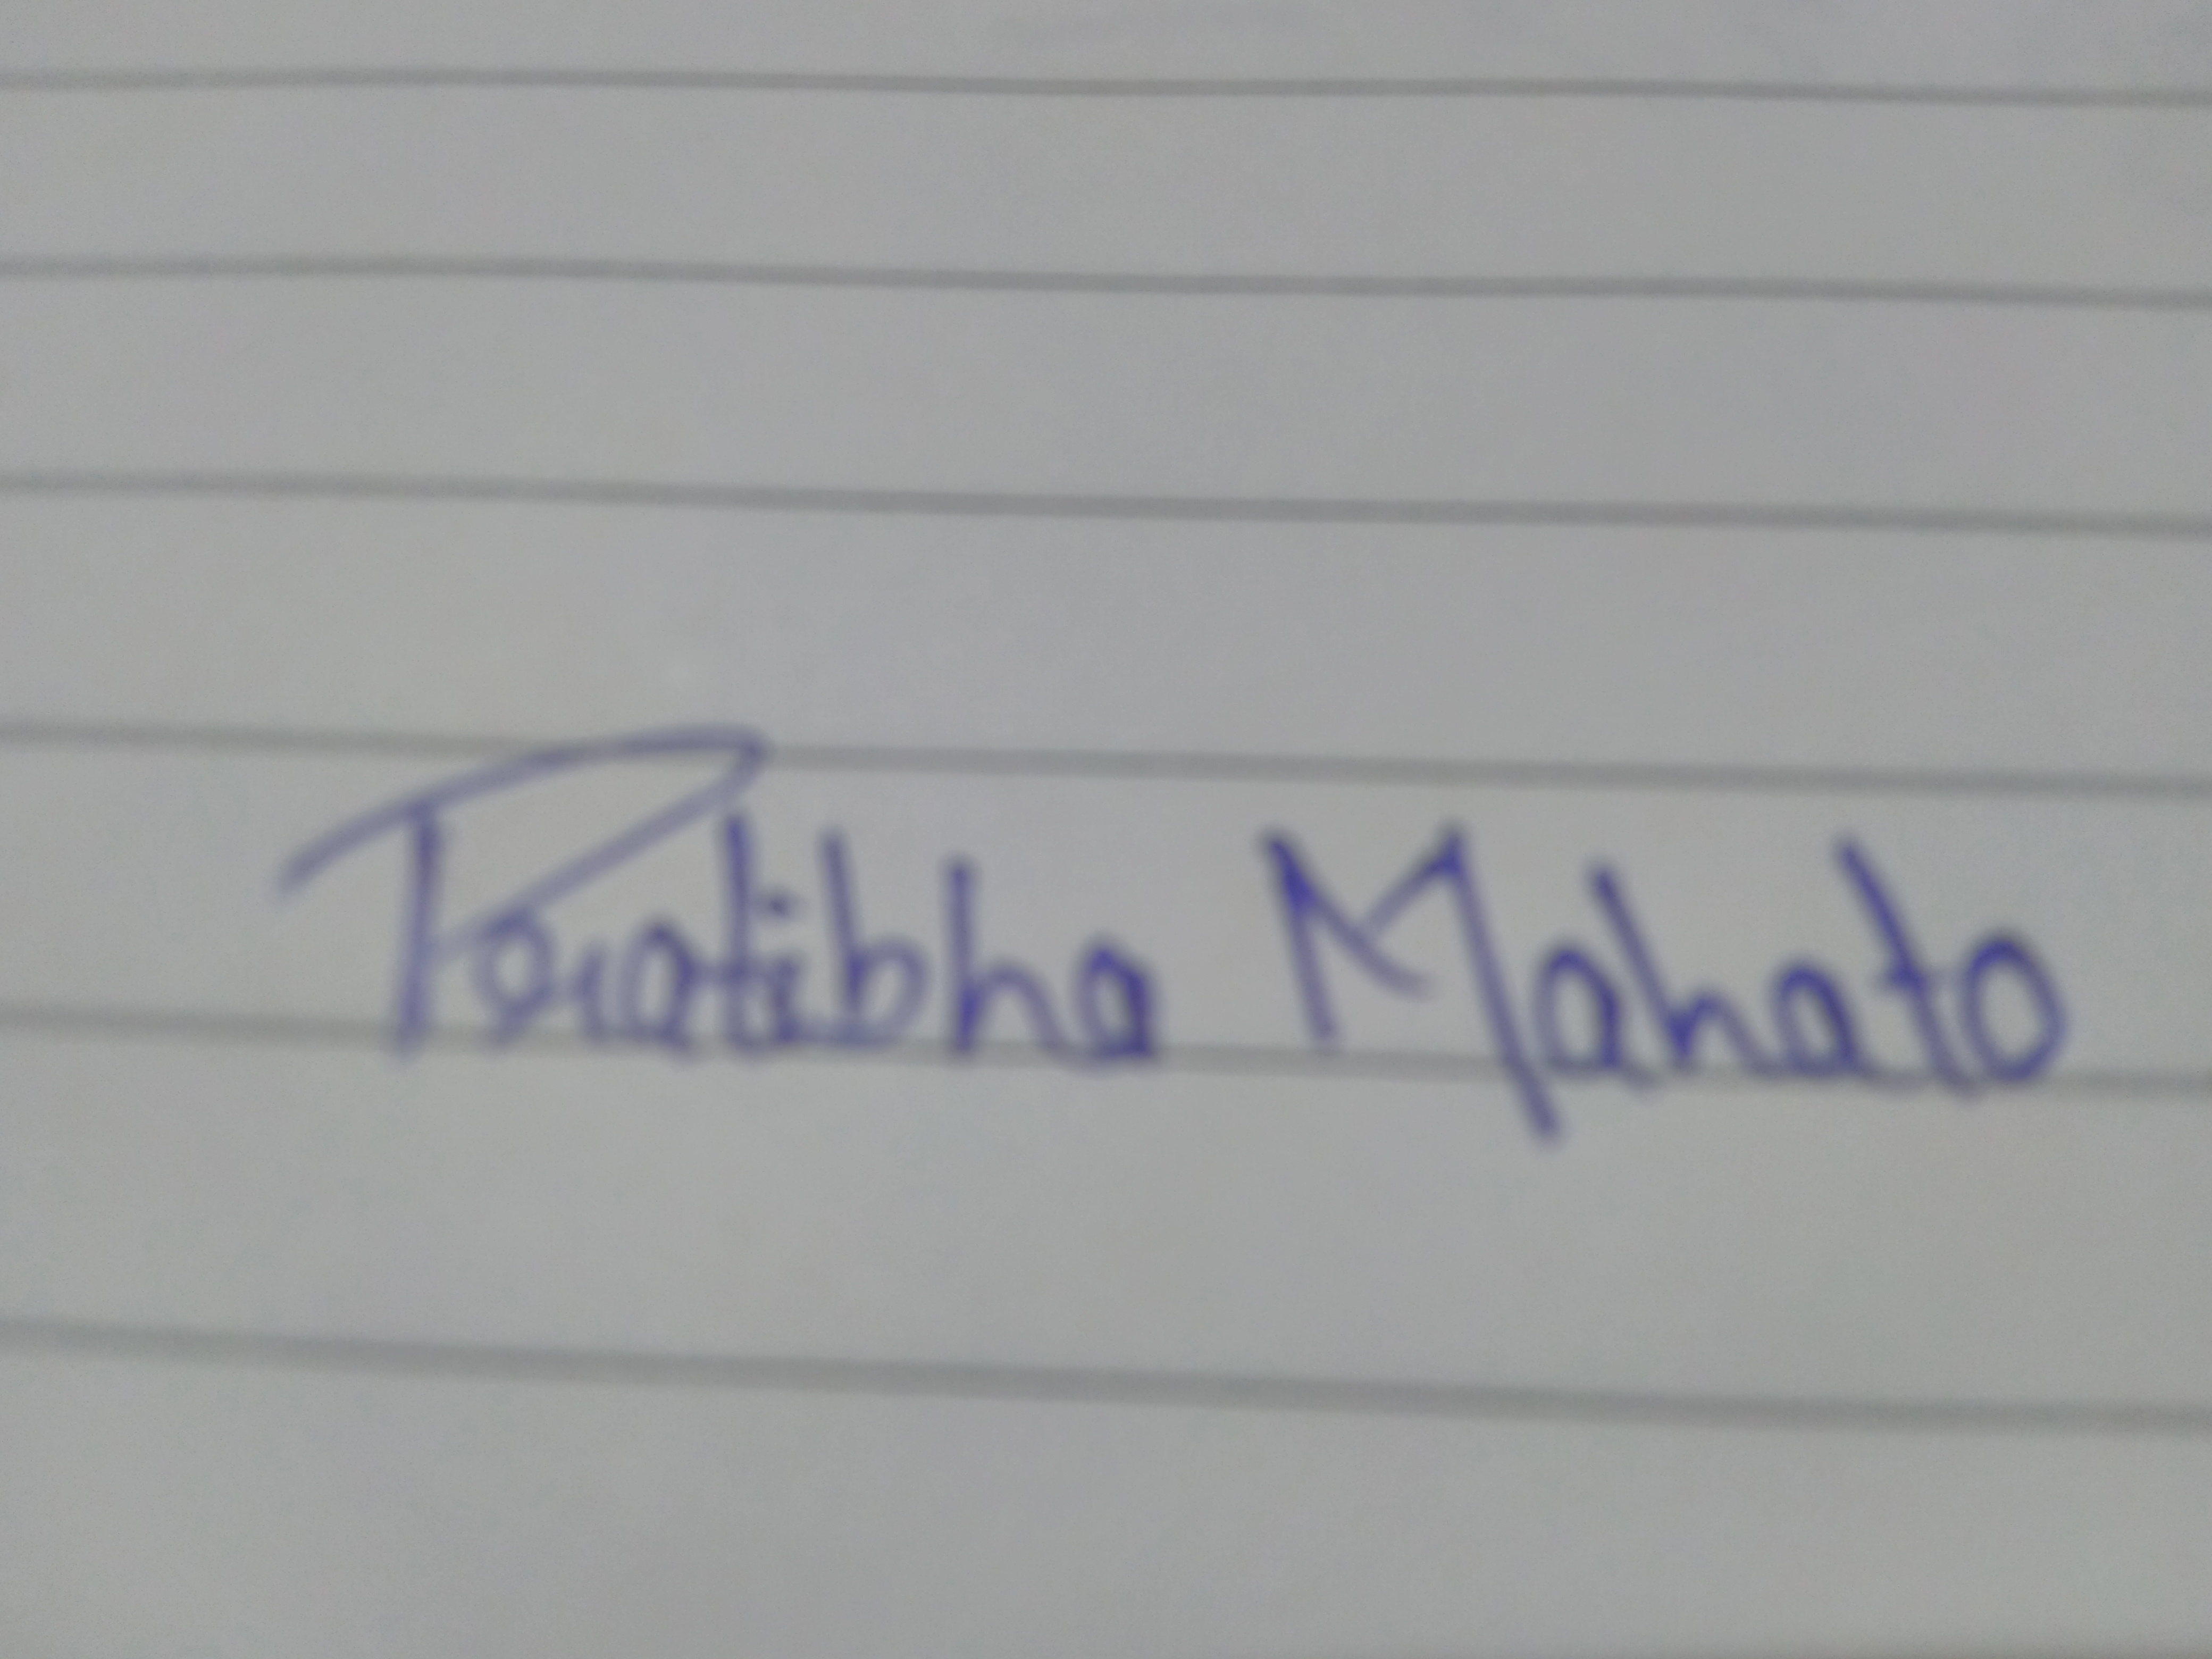 Pratibha Mahato